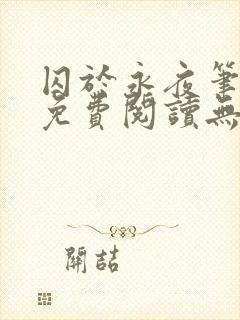 囚於永夜筆
免費閱讀無
開喆